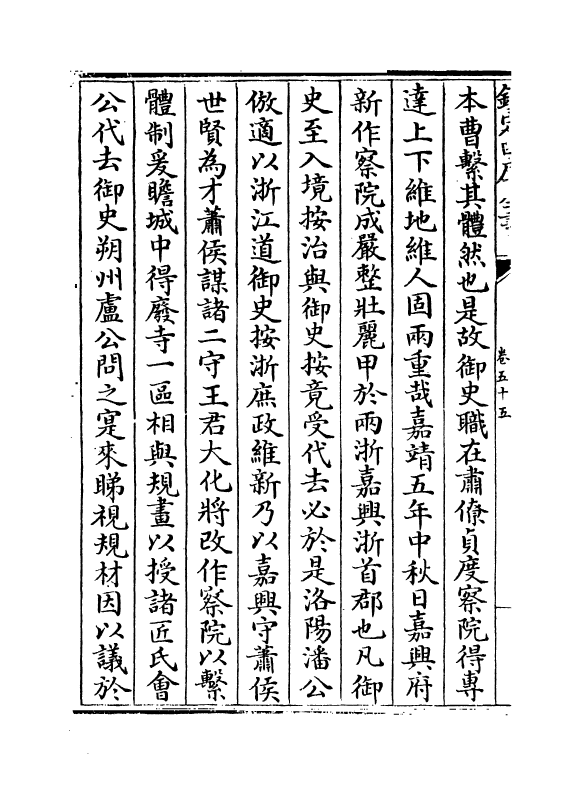 欽定四庫全書
卷五十五
本曹繫其體然也是故御史職在肅僚貞度察院得專
達上下維地維人固兩重哉嘉靖五年中秋日嘉興府
新作察院成嚴整壯麗甲於兩浙嘉興浙首郡也凡御
史至入境按治與御史按竟受代去必於是洛陽潘公
倣適以浙江道御史按浙庶政維新乃以嘉興守蕭侯
世賢為才蕭侯謀諸二守王君大化將改作察院以繫
體制爰瞻城中得廢寺一區相與規畫以授諸匠氏會
公代去御史朔州盧公問之寔來睇視規材因以議於